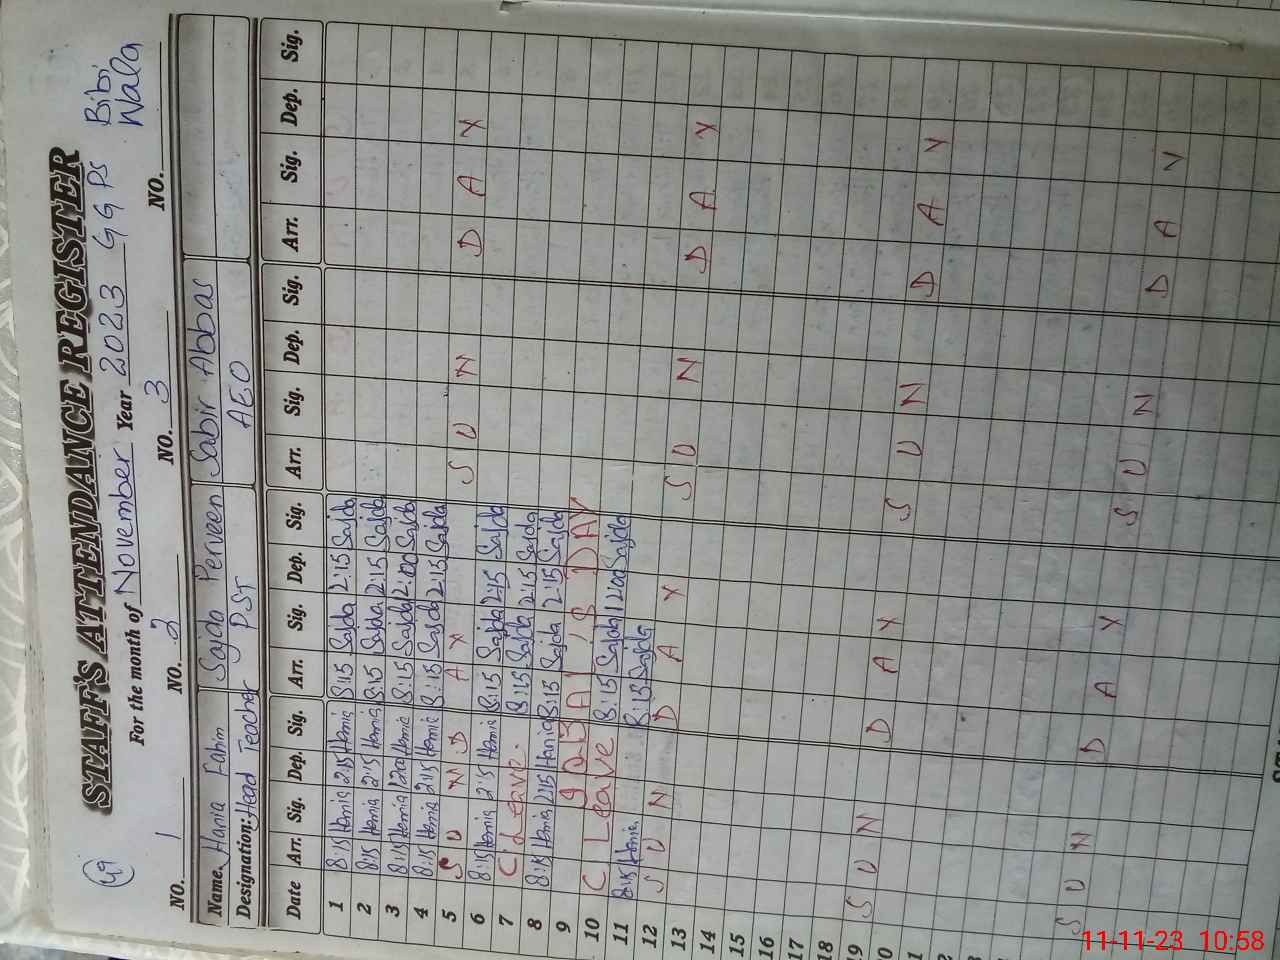 49
STAFF'S ATTENDANCE REGISTER
For the month of November Year 2023 GGPS Bibi Wala
NO. 1 NO. 2 NO. 3 NO.
Name. Hania Fahim Sajda Perveen Sabir Abbas
Designation: Head Teacher PST AEO
Date Arr. Sig. Dep. Sig. Arr. Sig. Dep. Sig. Arr. Sig. Dep. Sig. Arr. Sig. Dep. Sig.
1 8:15 Hania 2:15 Hania 8:15 Sajda 2:15 Sajda
2 8:15 Hania 2:15 Hania 8:15 Sajda 2:15 Sajda
3 8:15 Hania 1200 Hania 8:15 Sajda 12:00 Sajda
4 8:15 Hania 2:15 Hania 8:15 Sajda 2:15 Sajda
5 S U N D A Y S U N D A Y
6 8:15 Hania 2:15 Hania 8:15 Sajda 2:15 Sajda
7 C Leave. 8:15 Sajda 2:15 Sajda
8 8:15 Hania 2:15 Hania 8:15 Sajda 2:15 Sajda
9 DAY
10 C Leave 8:15 Sajda 12:00 Sajda
11 8:15 Hania 8:15 Sajda
12 S U N D A Y S U N D A Y
13
14
15
16
17
18
19 S U N D A Y S U N D A Y
S U N D A Y S U N D A Y
11-11-23 10:58